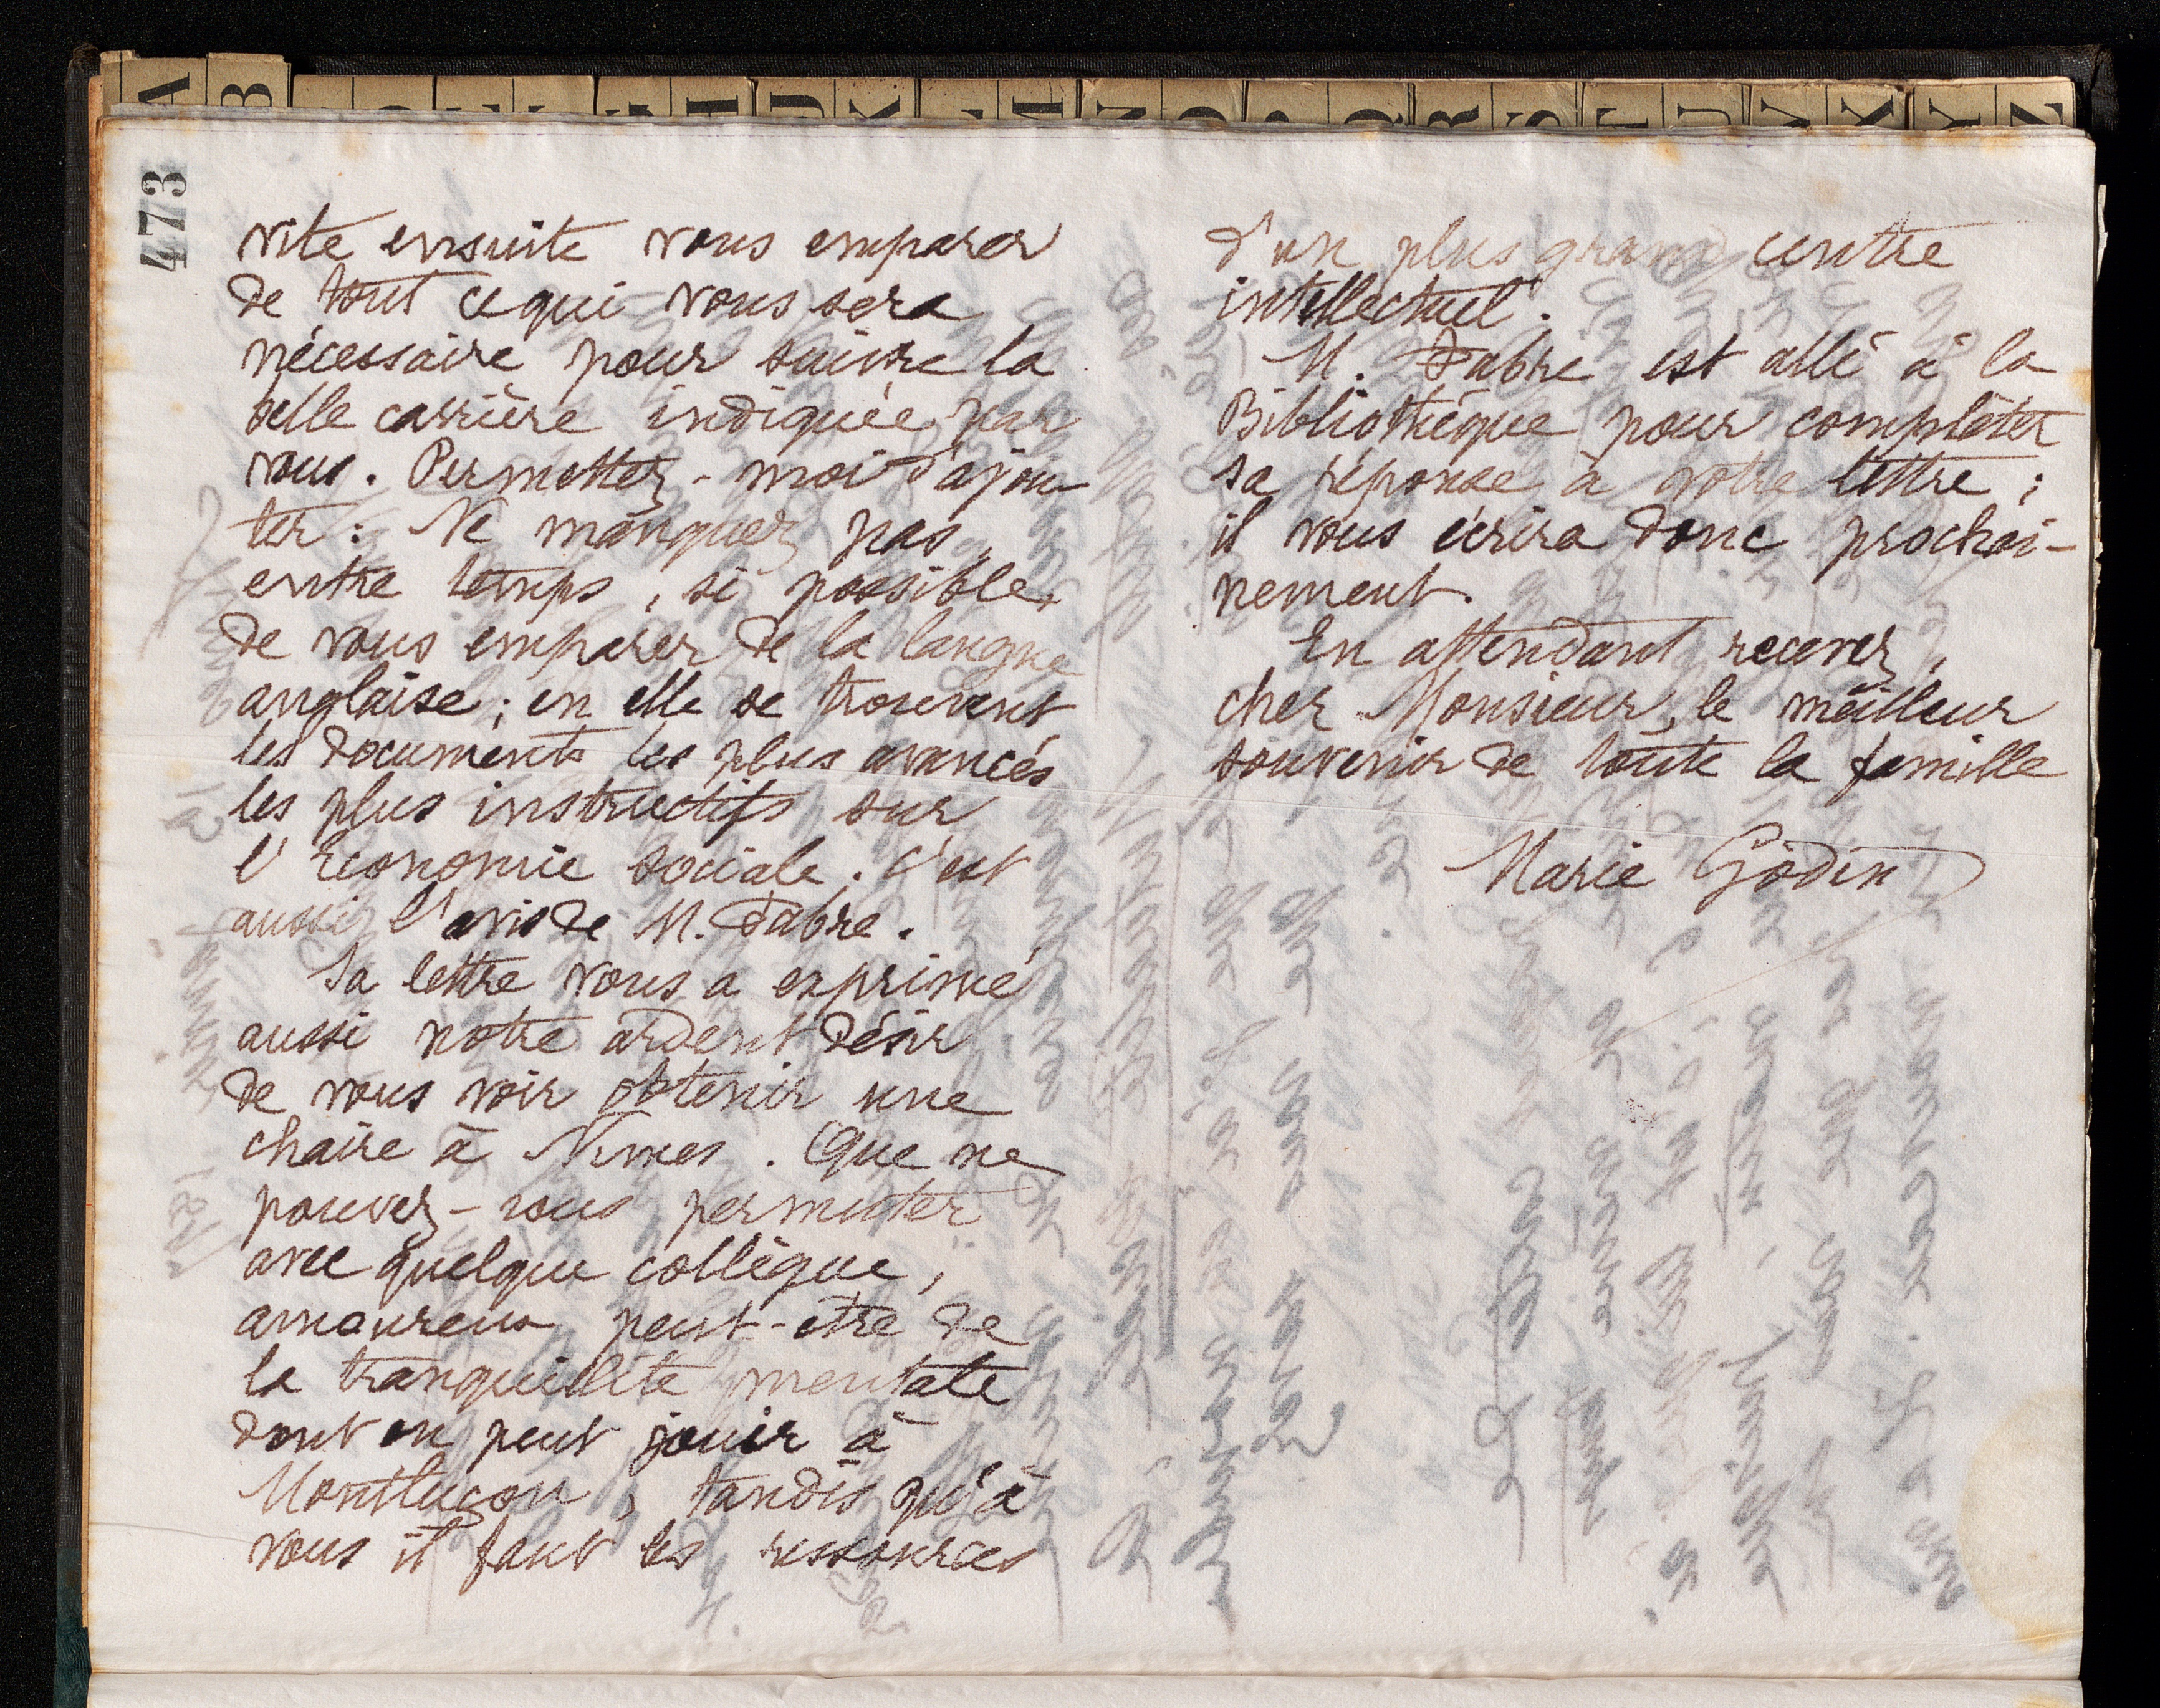 A B H D K N O R S T U V X Y Z
473
vite ensuite vous emparer
de tout ce qui vous sera
nécessaire pour suivre la
belle carrière indiquée par
vous. Permettez-moi d'ajou-
ter : Ne manquez pas,
entre temps, si possible,
de vous emparer de la langue
anglaise ; en elle se trouvent
les documents les plus avancés
les plus instructifs sur
l'Economie sociale. C'est
aussi l'avis de M. Fabre.
Sa lettre vous a exprimé
aussi notre ardent désir
de vous voir obtenir une
chaire à Nimes. Que ne
pouvez-vous permuter
avec quelque collègue,
amoureux peut-etre de
la tranquillité mentale
dont on peut jouir à
Montluçon, tandis qu'à
vous il faut les ressources
d'un plus grand centre
intellectuel.
M. Fabre est allé à la
Bibliothèque pour compléter
sa réponse à votre lettre ;
il vous écrira donc prochai-
nement.
En attendant recevez,
cher Monsieur, le meilleur
souvenir de toute la famille
Marie Godin